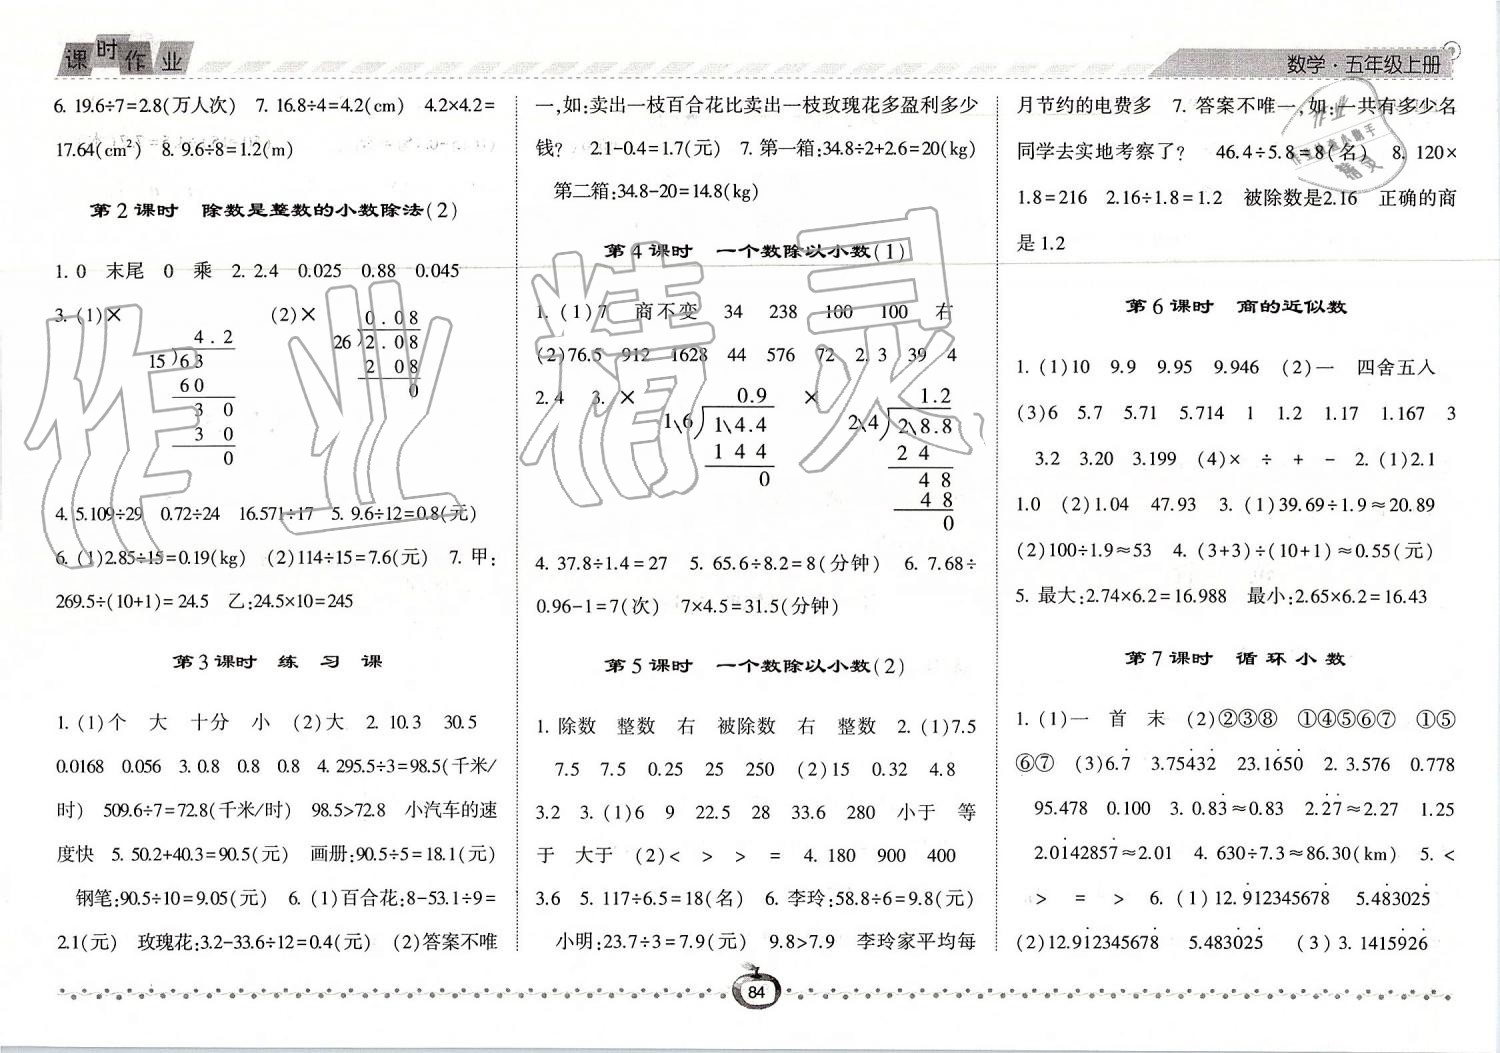 课时作业
数学·五年级上册
6. 19.6÷7=2.8(万人次) 7. 16.8÷4=4.2(cm) 4.2×4.2=
17.64(cm²) 8. 9.6÷8=1.2(m)
第2课时 除数是整数的小数除法(2)
1. 0 末尾 0 乘 2. 2.4 0.025 0.88 0.045
3. (1)× (2)×
4.2
15)63
60
3 0
3 0
0
0.08
26)2.08
2 08
0
4. 5.109÷29 0.72÷24 16.571÷17 5. 9.6÷12=0.8(元)
6. (1)2.85÷15=0.19(kg) (2)114÷15=7.6(元) 7. 甲:
269.5÷(10+1)=24.5 乙:24.5×10=245
第3课时 练习课
1. (1)个 大 十分 小 (2)大 2. 10.3 30.5
0.0168 0.056 3. 0.8 0.8 0.8 4. 295.5÷3=98.5(千米/
时) 509.6÷7=72.8(千米/时) 98.5>72.8 小汽车的速
度快 5. 50.2+40.3=90.5(元) 画册:90.5÷5=18.1(元)
钢笔:90.5÷10=9.05(元) 6. (1)百合花:8-53.1÷9=
2.1(元) 玫瑰花:3.2-33.6÷12=0.4(元) (2)答案不唯
一,如:卖出一枝百合花比卖出一枝玫瑰花多盈利多少
钱? 2.1-0.4=1.7(元) 7. 第一箱:34.8÷2+2.6=20(kg)
第二箱:34.8-20=14.8(kg)
第4课时 一个数除以小数(1)
1. (1)7 商不变 34 238 100 100 右
(2)76.5 912 1628 44 576 72 2. 3 39 4
2.4 3. × ×
0.9
1\6)1\4.4
1 4 4
0
1.2
2\4)2\8.8
2 4
4 8
4 8
0
4. 37.8÷1.4=27 5. 65.6÷8.2=8(分钟) 6. 7.68÷
0.96-1=7(次) 7×4.5=31.5(分钟)
第5课时 一个数除以小数(2)
1. 除数 整数 右 被除数 右 整数 2. (1)7.5
7.5 7.5 0.25 25 250 (2)15 0.32 4.8
3.2 3. (1)6 9 22.5 28 33.6 280 小于 等
于 大于 (2)< > > = 4. 180 900 400
3.6 5. 117÷6.5=18(名) 6. 李玲:58.8÷6=9.8(元)
小明:23.7÷3=7.9(元) 9.8>7.9 李玲家平均每
月节约的电费多 7. 答案不唯一,如:一共有多少名
同学去实地考察了? 46.4÷5.8=8(名) 8. 120×
1.8=216 2.16÷1.8=1.2 被除数是2.16 正确的商
是1.2
第6课时 商的近似数
1. (1)10 9.9 9.95 9.946 (2)一 四舍五入
(3)6 5.7 5.71 5.714 1 1.2 1.17 1.167 3
3.2 3.20 3.199 (4)× ÷ + - 2. (1)2.1
1.0 (2)1.04 47.93 3. (1)39.69÷1.9≈20.89
(2)100÷1.9≈53 4. (3+3)÷(10+1)≈0.55(元)
5. 最大:2.74×6.2=16.988 最小:2.65×6.2=16.43
第7课时 循环小数
1. (1)一 首 末 (2)②③⑧ ①④⑤⑥⑦ ①⑤
⑥⑦ (3)6.7̇ 3.75̇432̇ 23.1̇650̇ 2. 3.576 0.778
95.478 0.100 3. 0.83̇≈0.83 2.2̇7̇≈2.27 1.25
2.0̇142857̇≈2.01 4. 630÷7.3≈86.30(km) 5. <
> = > 6. (1)12.9̇12345678̇ 5.4̇83025̇
(2)12.91̇2345678̇ 5.4830̇25̇ (3)3.1415̇926̇
84
作业精灵